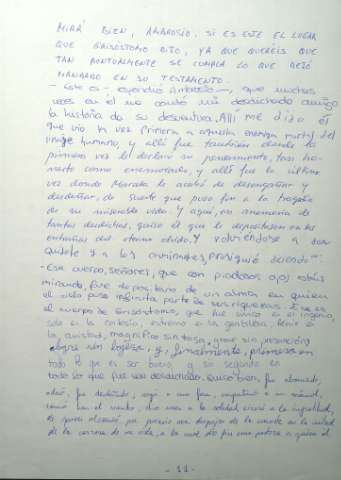 MIRÁ BIEN, AMBROSIO, SI ES ESTE EL LUGAR
QUE GRISÓSTOMO DIJO, YA QUE QUERÉIS QUE
TAN PUNTUALMENTE SE CUMPLA LO QUE DEJÓ
MANDADO EN SU TESTAMENTO.
- Este es - respondió Ambrosio -, que muchas
veces en él me contó mi desdichado amigo
la historia de su desventura. Allí me dijo él
que vio la vez primera a aquella enemiga mortal del
linaje humano, y allí fue también donde la
primera vez le declaró su pensamiento, tan ho-
nesto como enamorado, y allí fue la última
vez donde Marcela le acabó de desengañar y
desdeñar, de suerte que puso fin a la tragedia
de su miserable vida. Y aquí, en memoria de
tantas desdichas, quiso él que le depositasen en las
entrañas del eterno olvido. Y volviéndose a don
Quijote y a los caminantes, prosiguió diciendo:
- Ese cuerpo, señores, que con piadosos ojos estáis
mirando, fue depositario de un alma en quien
el cielo puso infinita parte de sus riquezas. Ese es
el cuerpo de Grisóstomo, que fue único en el ingenio,
solo en la cortesía, extremo en la gentileza, fénix en
la amistad, magnífico sin tasa, grave sin presunción,
alegre sin bajeza, y, finalmente, primero en
todo lo que es ser bueno, y sin segundo en
todo lo que fue ser desdichado. Quiso bien, fue aborrecido,
adoró, fue desdeñado, rogó a una fiera, importunó a un mármol,
corrió tras el viento, dio voces a la soledad, sirvió a la ingratitud,
de quien alcanzó por premio ser despojos de la muerte en la mitad
de la carrera de su vida, a la cual dio fin una pastora a quien él
- 11 -